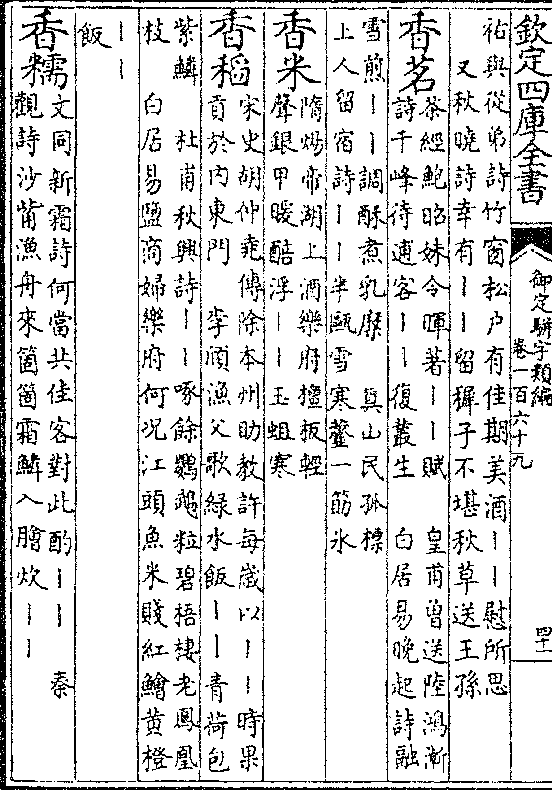 欽定四庫全書
御定駢字類編
卷一百六十九
四十一
祐與從弟詩竹窗松戶有佳期美酒丨丨慰所思
又秋曉詩幸有丨丨留穉子不堪秋草送王孫
香茗
茶經鮑昭妹令暉著丨丨賦 皇甫曾送陸鴻漸
詩千峰待逋客丨丨復叢生 白居易晚起詩融
雪煎丨丨調酥煮乳糜 真山民孤標
上人留宿詩丨丨半甌雪寒虀一筯氷
香米
隋煬帝湖上酒樂府檀板輕
聲銀甲暖醅浮丨丨玉蛆寒
香稻
宋史胡仲堯傳除本州助教許每歲以丨丨時果
貢於内東門 李頎漁父歌綠水飯丨丨青荷包
紫鱗 杜甫秋興詩丨丨啄餘鸚鵡粒碧梧棲老鳳凰
枝 白居易鹽商婦樂府何况江頭魚米賤紅鱠黄橙
丨丨
飯
香糯
文同新霜詩何當共佳客對此酌丨丨 秦
觀詩沙觜漁舟來箇箇霜鱗入膾炊丨丨